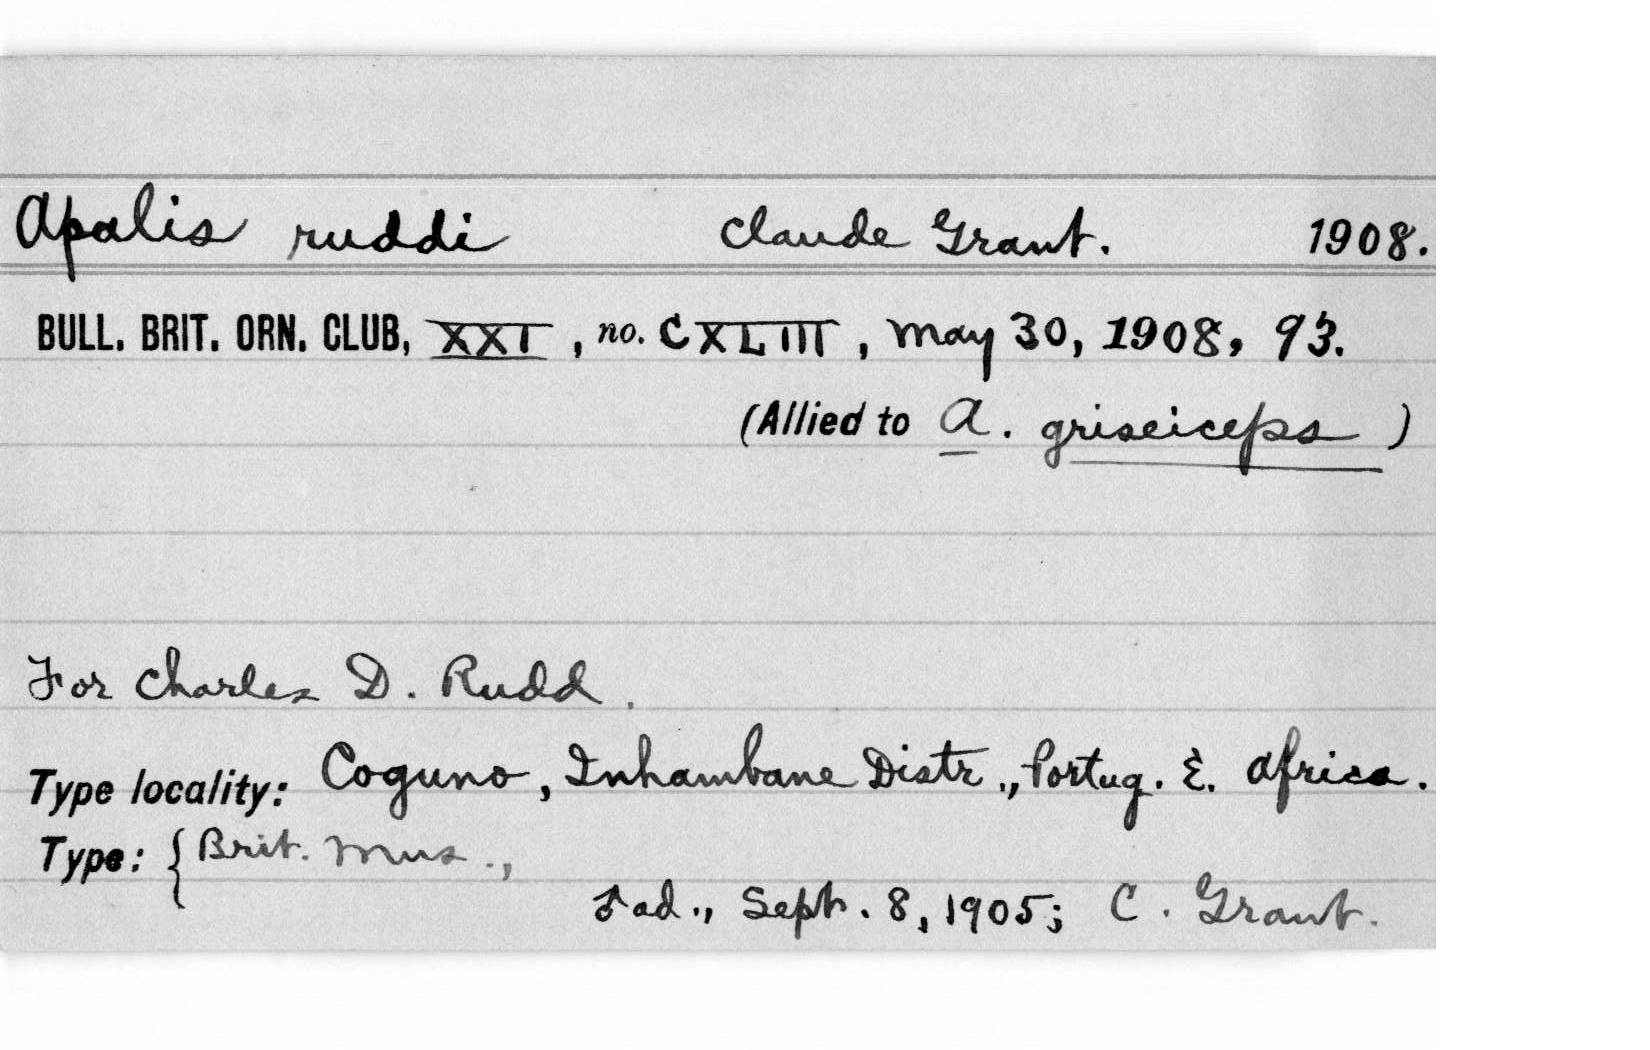 Apalis ruddi Claude Grant. 1908.
BULL. BRIT. ORN. CLUB, XXI, no. CXLIII, May 30, 1908, 93.
(Allied to A. griseiceps)
For Charles D. Rudd.
Type locality: Coguno, Inhambane Distr., Portug. E. Africa.
Type: { Brit. Mus.,
ad., Sept. 8, 1905; C. Grant.